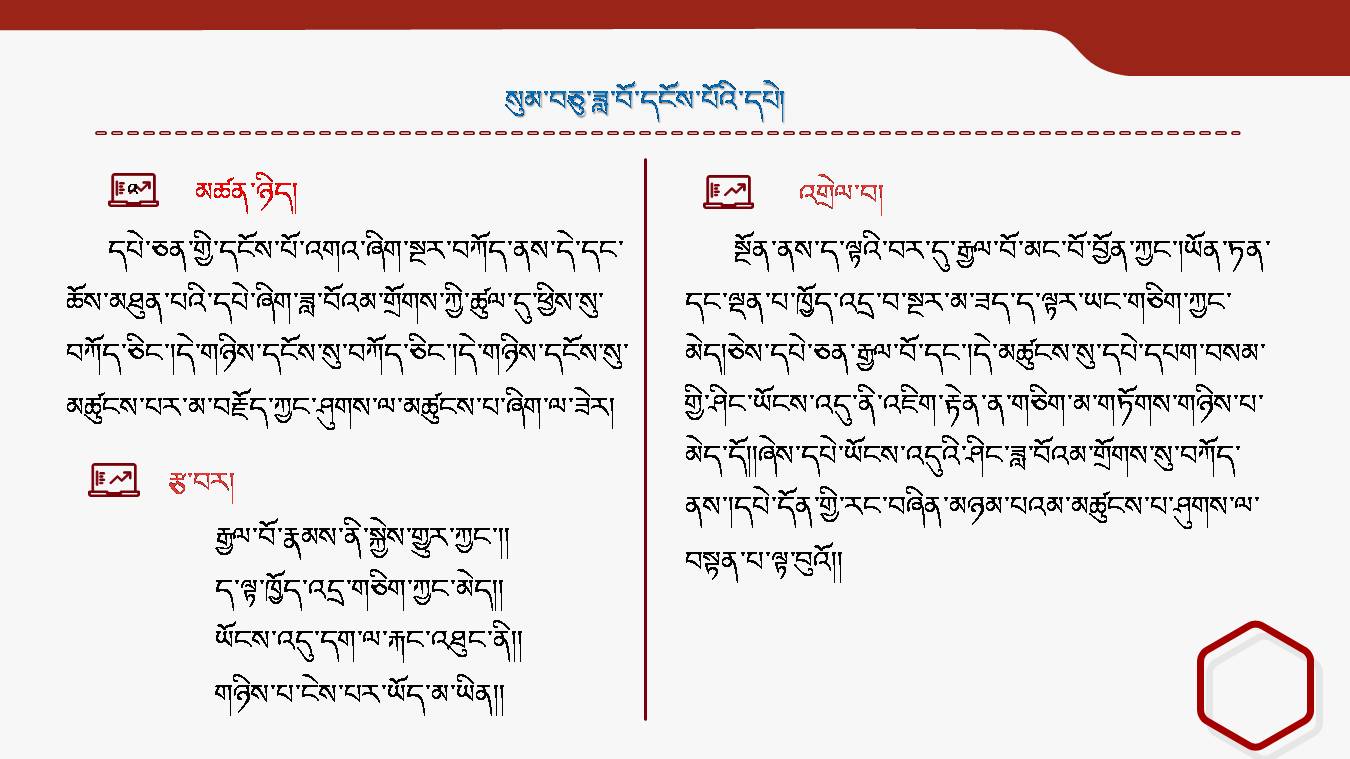 སུམ་བཅུ་ཟླ་བོ་དངོས་པོའི་དཔེ།
མཚན་ཉིད།
དཔེ་ཅན་གྱི་དངོས་པོ་འགའ་ཞིག་སྔར་བཀོད་ནས་དེ་དང་
ཆོས་མཐུན་པའི་དཔེ་ཞིག་ཟླ་བོའམ་གྲོགས་ཀྱི་ཚུལ་དུ་ཕྱིས་སུ་
བཀོད་ཅིང་།དེ་གཉིས་དངོས་སུ་བཀོད་ཅིང་།དེ་གཉིས་དངོས་སུ་
མཚུངས་པར་མ་བརྗོད་ཀྱང་ཤུགས་ལ་མཚུངས་པ་ཞིག་ལ་ཟེར།
རྩ་བར།
རྒྱལ་པོ་རྣམས་ནི་སྐྱེས་གྱུར་ཀྱང་།།
ད་ལྟ་ཁྱོད་འདྲ་གཅིག་ཀྱང་མེད།།
ཡོངས་འདུ་དག་ལ་རྐང་འཐུང་ནི།།
གཉིས་པ་ངེས་པར་ཡོད་མ་ཡིན།།
འགྲེལ་བ།
སྔོན་ནས་ད་ལྟའི་བར་དུ་རྒྱལ་པོ་མང་པོ་བྱོན་ཀྱང་།ཡོན་ཏན་
དང་ལྡན་པ་ཁྱོད་འདྲ་བ་སྔར་མ་ཟད་ད་ལྟར་ཡང་གཅིག་ཀྱང་
མེད།ཅེས་དཔེ་ཅན་རྒྱལ་པོ་དང་།དེ་མཚུངས་སུ་དཔེ་དཔག་བསམ་
གྱི་ཤིང་ཡོངས་འདུ་ནི་འཇིག་རྟེན་ན་གཅིག་མ་གཏོགས་གཉིས་པ་
མེད་དོ།།ཞེས་དཔེ་ཡོངས་འདུའི་ཤིང་ཟླ་བོའམ་གྲོགས་སུ་བཀོད་
ནས།དཔེ་དོན་གྱི་རང་བཞིན་མཉམ་པའམ་མཚུངས་པ་ཤུགས་ལ་
བསྟན་པ་ལྟ་བུའོ།།